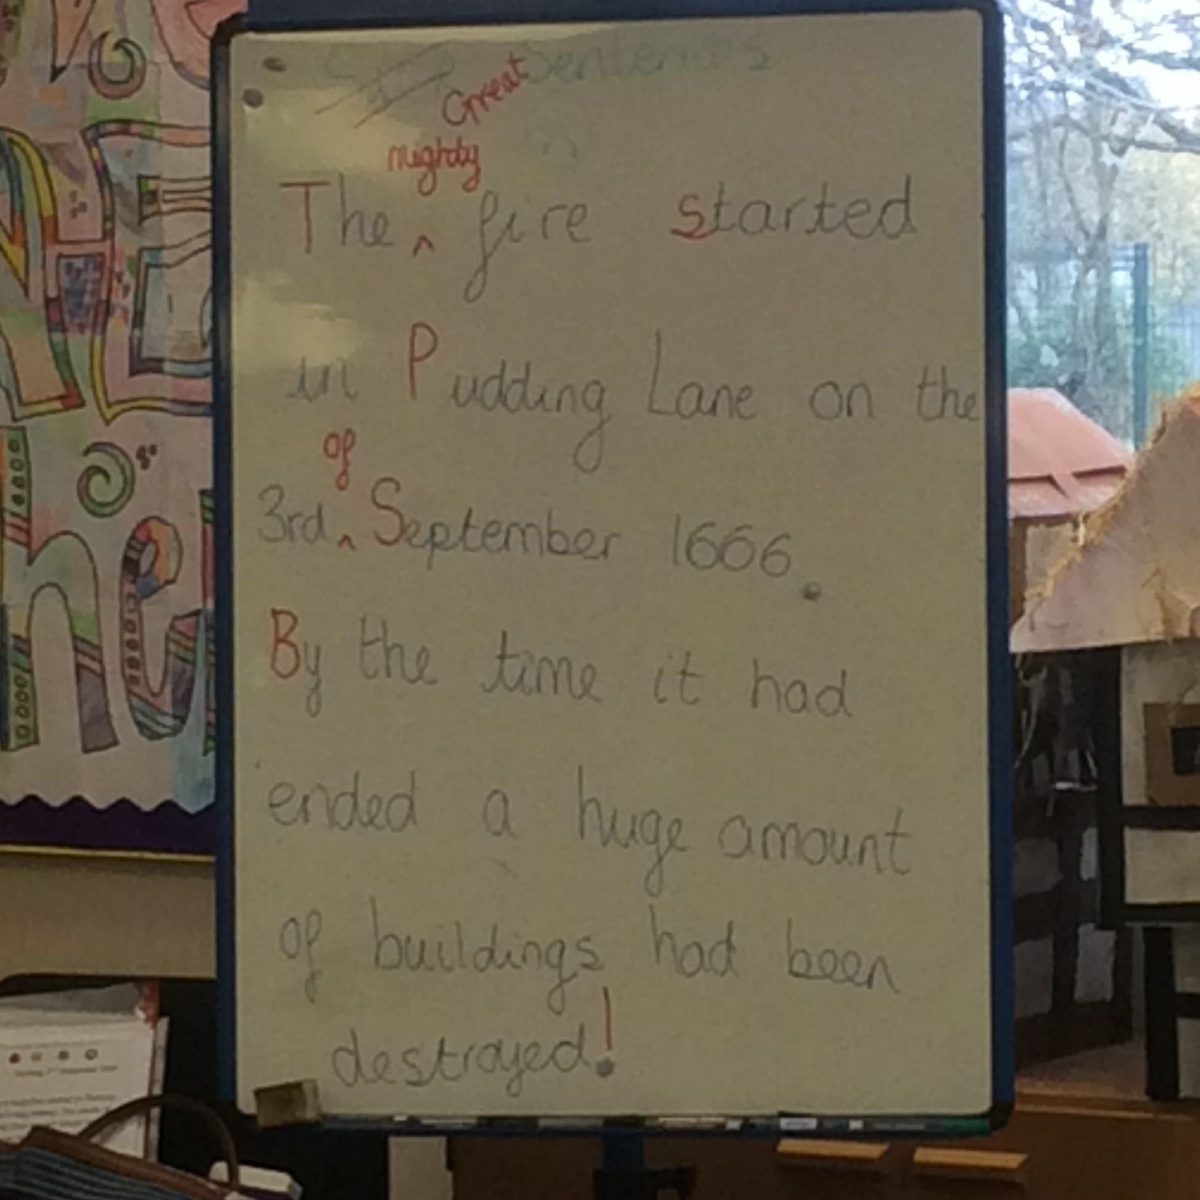 Sentences
Great
mighty
The ^ fire started
in Pudding Lane on the
of
3rd ^ September 1666.
By the time it had
ended a huge amount
of buildings had been
destroyed!